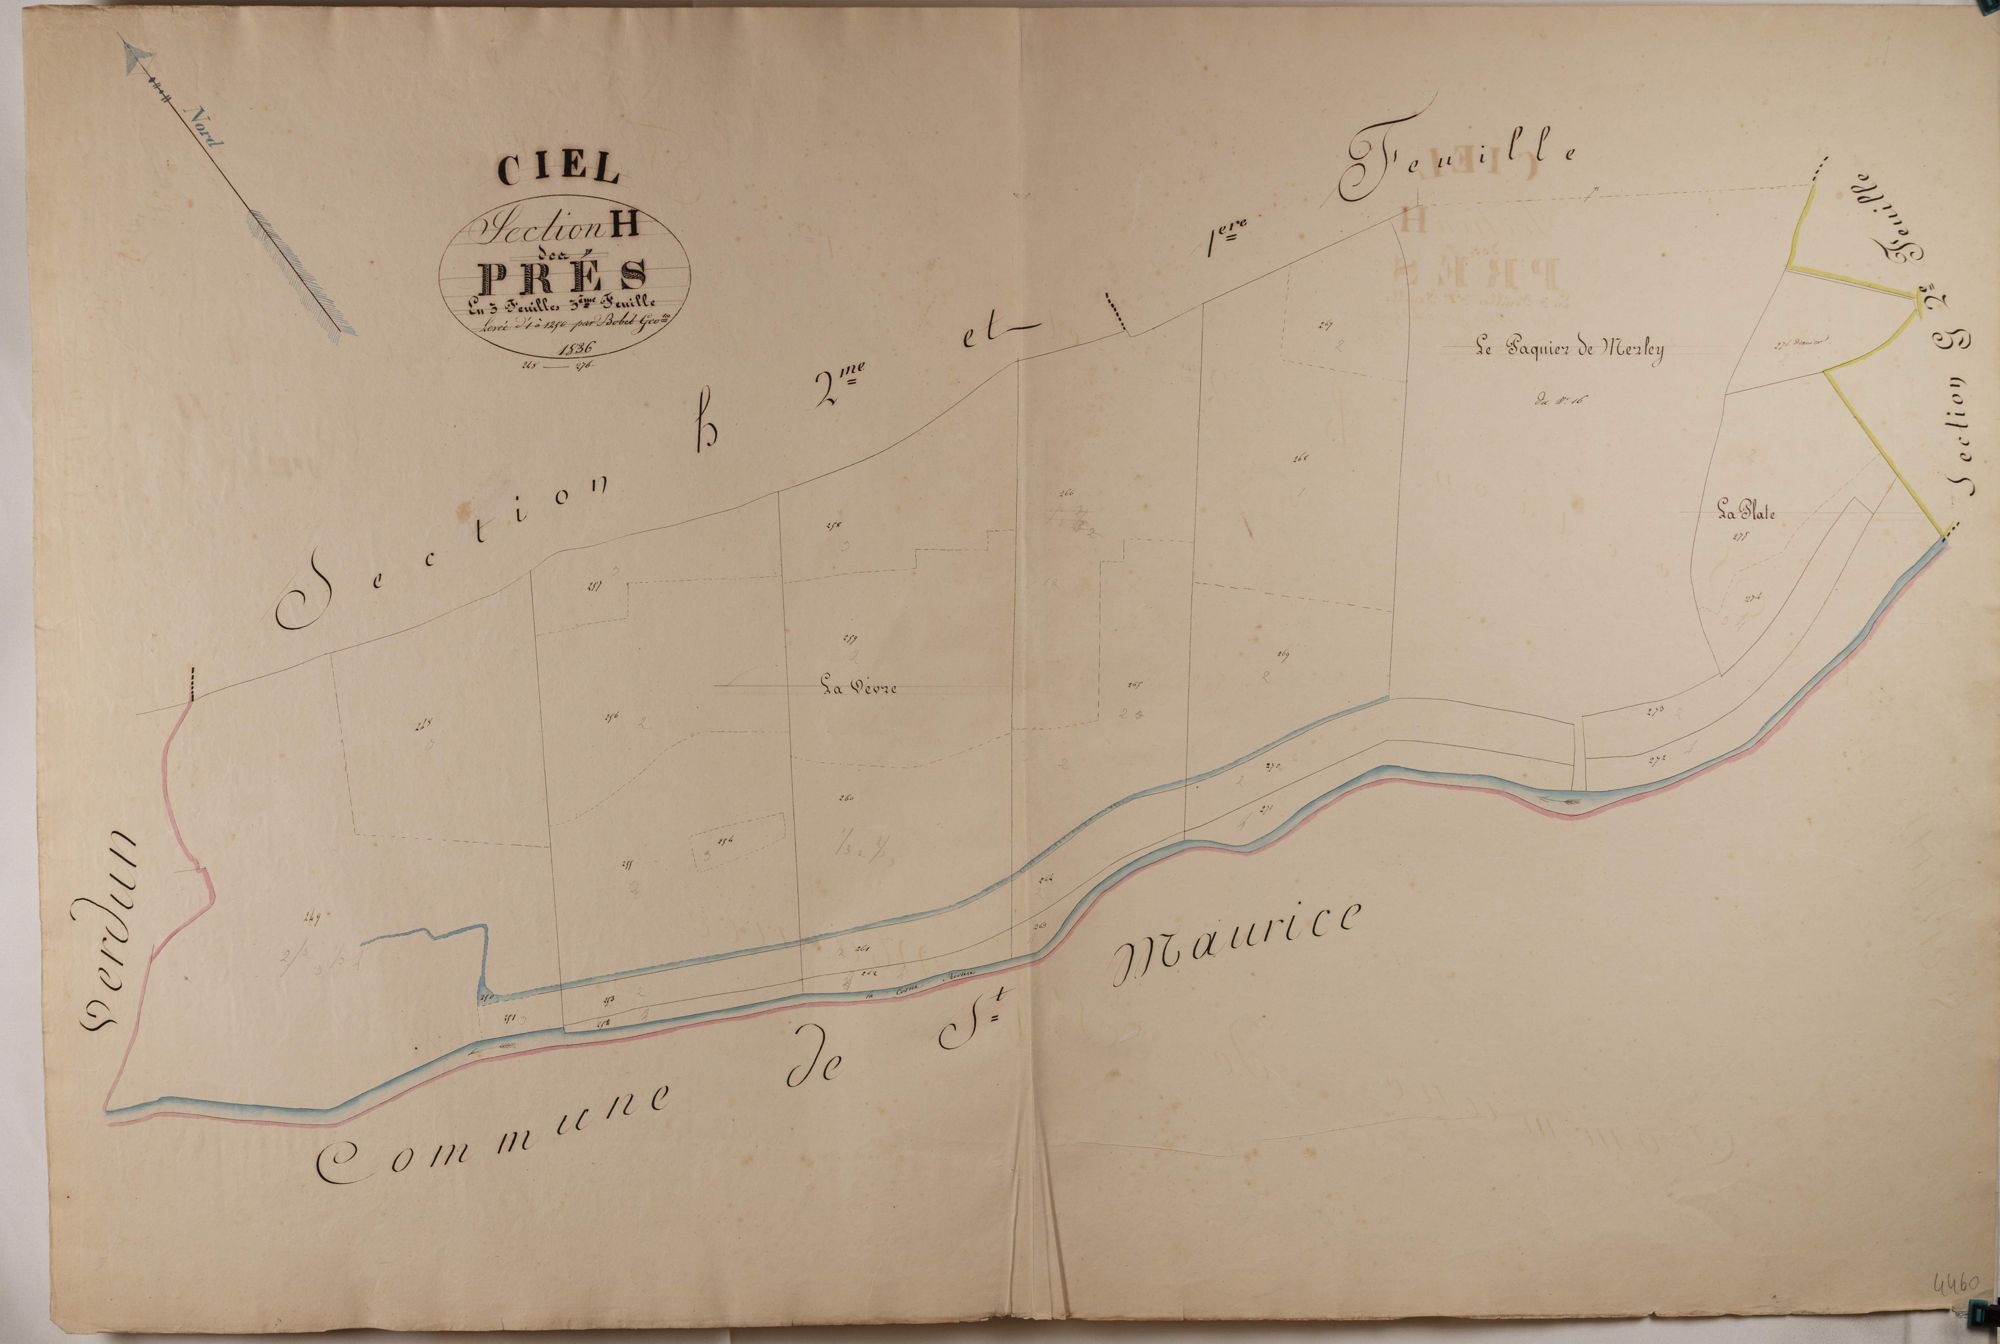 Nord
CIEL
Section H
des
PRÉS
En 3 Feuilles 3ème Feuille
Levée d'1 à 1250 par Bobet Geotre
1836
248 — 276
Section h 2me et 1ere Feuille
Section G 2e Feuille
267
Le Paquier de Merley
du No 16
276 Dernier
268
266
258
257
La Plate
275
274
259
La Vévre
269
265
256
248
273
272
270
271
260
254
255
264
263
249
261
262
la Cosne Rivière
250
253
251
252
Verdun
Commune de St Maurice
4460